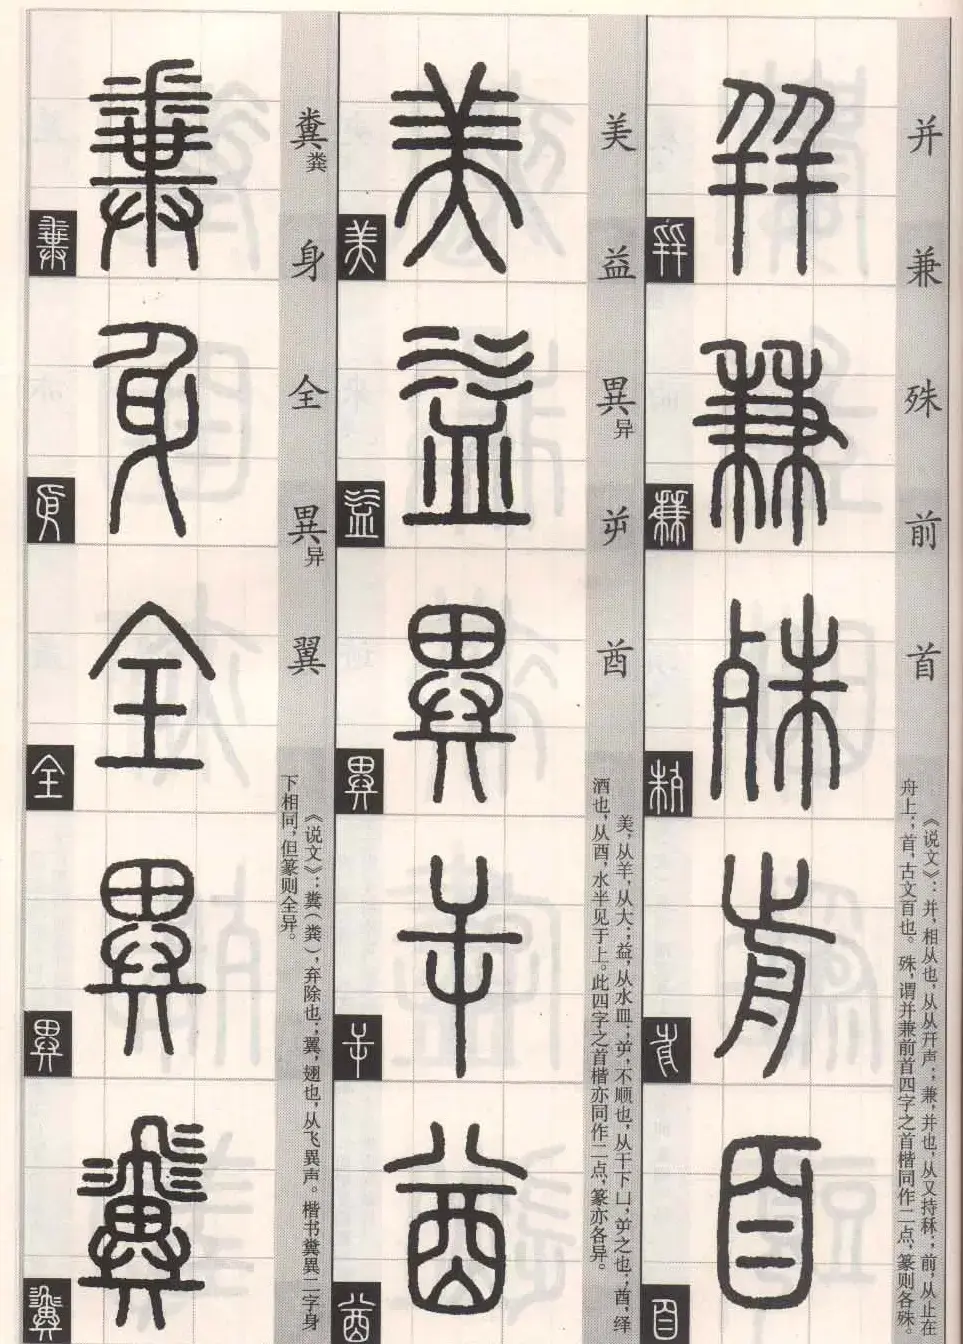 并兼殊前首
《说文》：并，相从也，从从幵声；兼，并也，从又持秝；前，从止在
舟上；首，古文𦣻也。殊，谓并兼前首四字之首楷同作二点，篆则各殊。
美益異异屰酋
美，从羊，从大；益，从水皿；屰，不顺也，从干下凵，屰之也；酋，绎
酒也，从酉，水半见于上。此四字之首楷亦同作二点，篆亦各异。
糞粪身全異异翼
《说文》：糞（粪），弃除也；翼，翅也，从飞異声。楷书糞異二字身
下相同，但篆则全异。